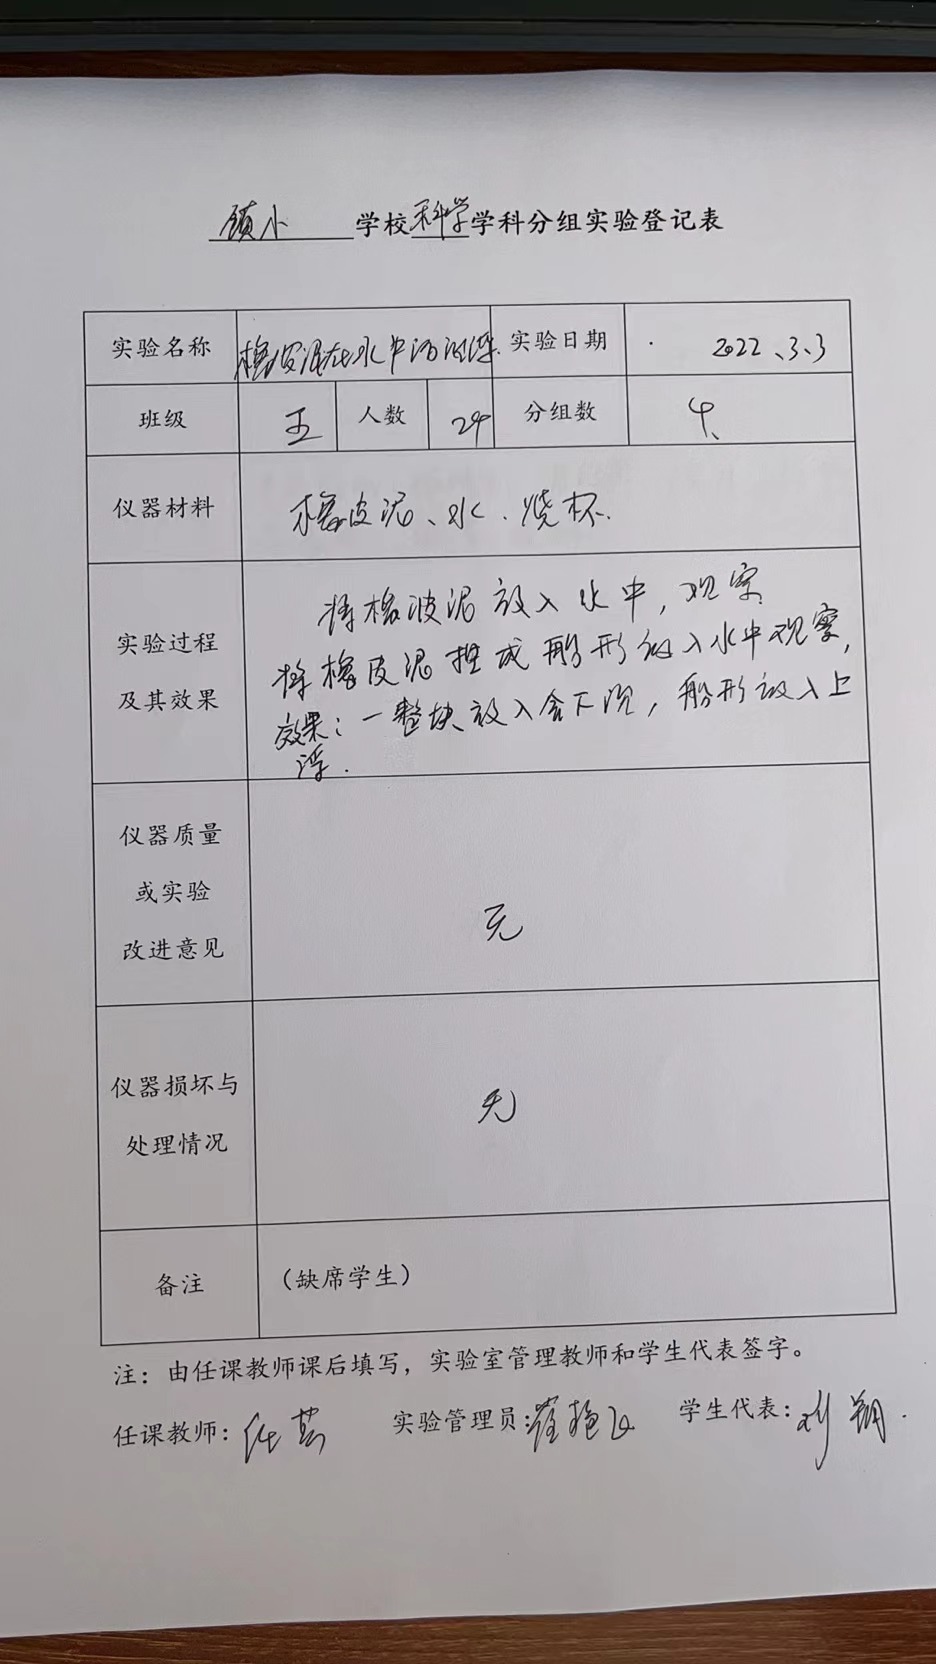 镇小 学校科学学科分组实验登记表
实验名称 橡皮泥在水中的沉浮 实验日期 2022、3、3
班级 五 人数 24 分组数 4、
仪器材料 橡皮泥、水、烧杯.
实验过程
及其效果
将橡皮泥放入水中,观察
将橡皮泥捏成船形放入水中观察,
效果:一整块放入会下沉,船形放入上
浮.
仪器质量
或实验
改进意见
无
仪器损坏与
处理情况
无
备注 (缺席学生)
注:由任课教师课后填写,实验室管理教师和学生代表签字。
任课教师: 实验管理员: 学生代表: